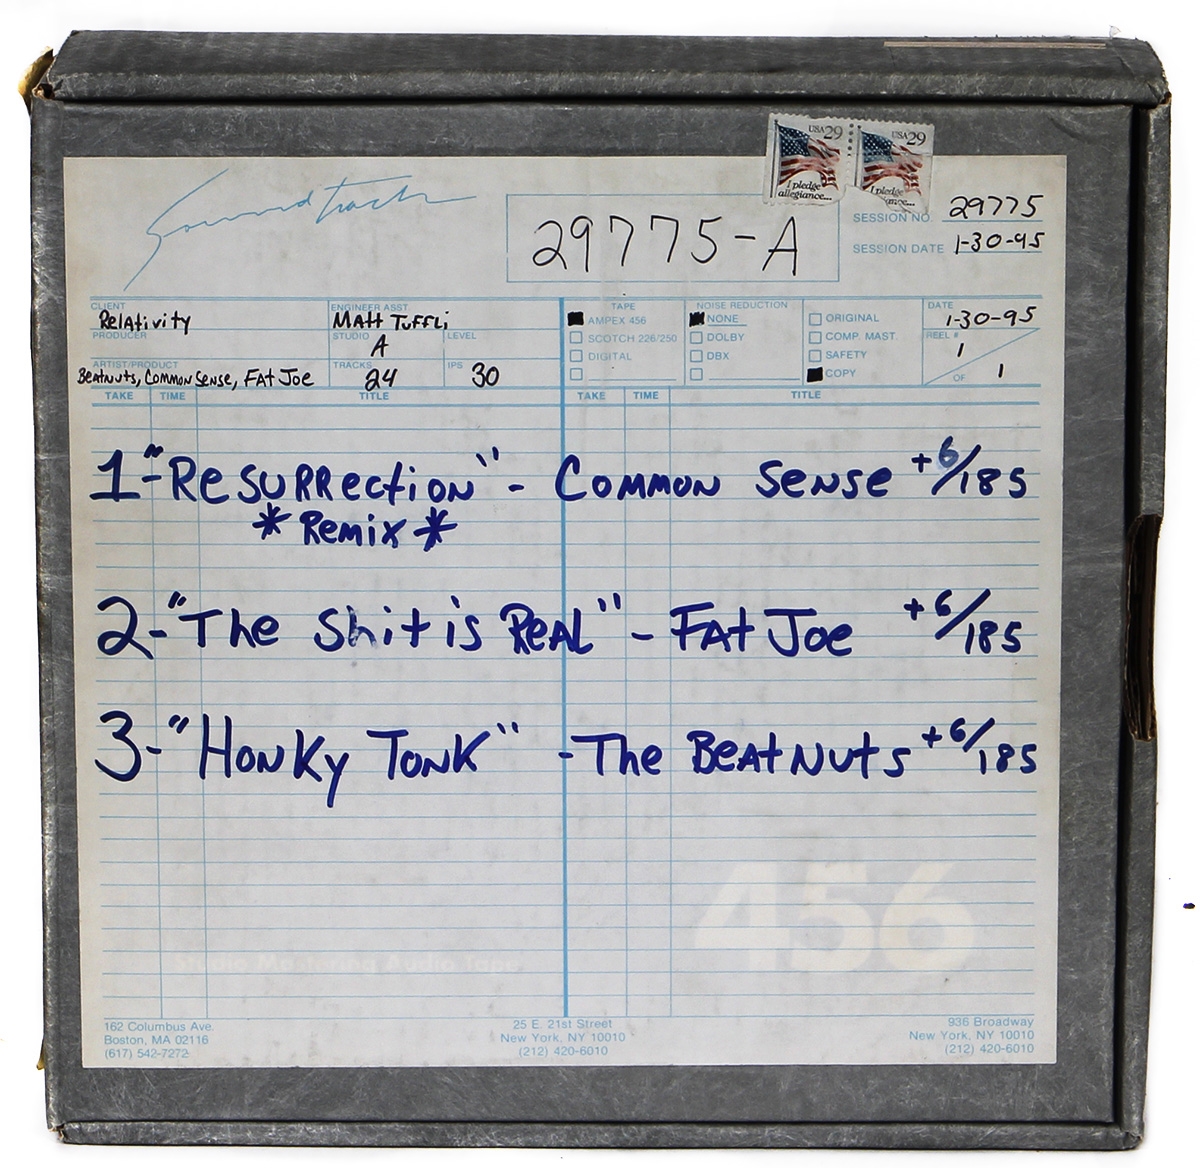 USA 29 USA 29
I pledge allegiance... I pledge ...ance...
Soundtrack
29775-A
SESSION NO 29775
SESSION DATE 1-30-95
CLIENT
Relativity
PRODUCER
ARTIST/PRODUCT
Beatnuts, Common Sense, Fat Joe
ENGINEER ASST.
Matt Tuffli
STUDIO A LEVEL
TRACKS 24 IPS 30
TAPE
AMPEX 456
SCOTCH 226/250
DIGITAL
NOISE REDUCTION
NONE
DOLBY
DBX
ORIGINAL
COMP. MAST.
SAFETY
COPY
DATE
1-30-95
REEL #
1
OF 1
TAKE TIME TITLE TAKE TIME TITLE
1-"Resurrection" - Common Sense +6/185
* Remix *
2-"The Shit is Real" - Fat Joe +6/185
3-"Honky Tonk" - The Beatnuts +6/185
456
Studio Mastering Audio Tape
162 Columbus Ave.
Boston, MA 02116
(617) 542-7272
25 E. 21st Street
New York, NY 10010
(212) 420-6010
936 Broadway
New York, NY 10010
(212) 420-6010